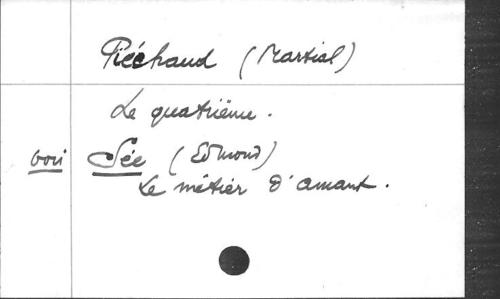 Piéchaud (Martial)
Le quatrième.
voir Sée (Edmond)
Le métier d'amant.